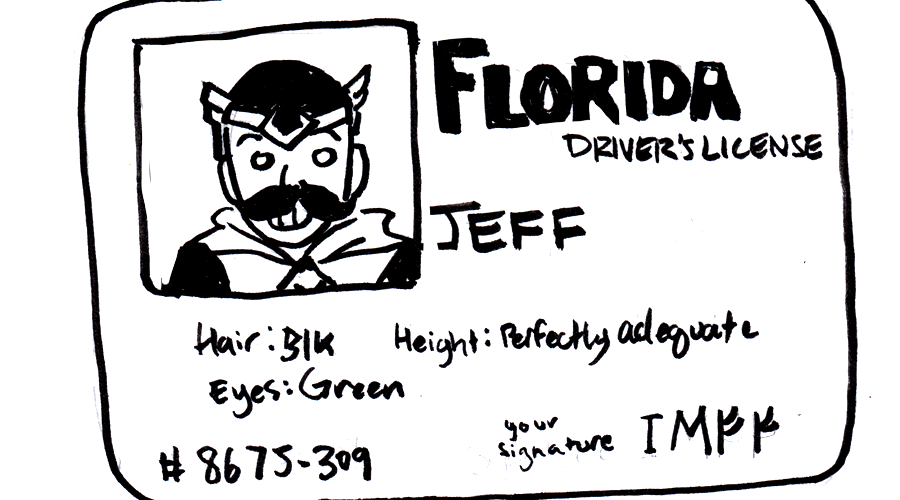 FLORIDA
DRIVER'S LICENSE
JEFF
Hair: Blk Height: Perfectly adequate
Eyes: Green
your
signature
# 8675-309